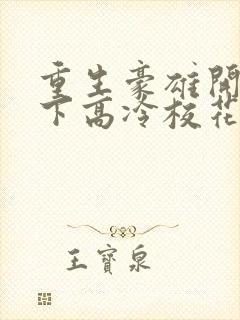 重生豪雄開
下高冷校花
王寶泉